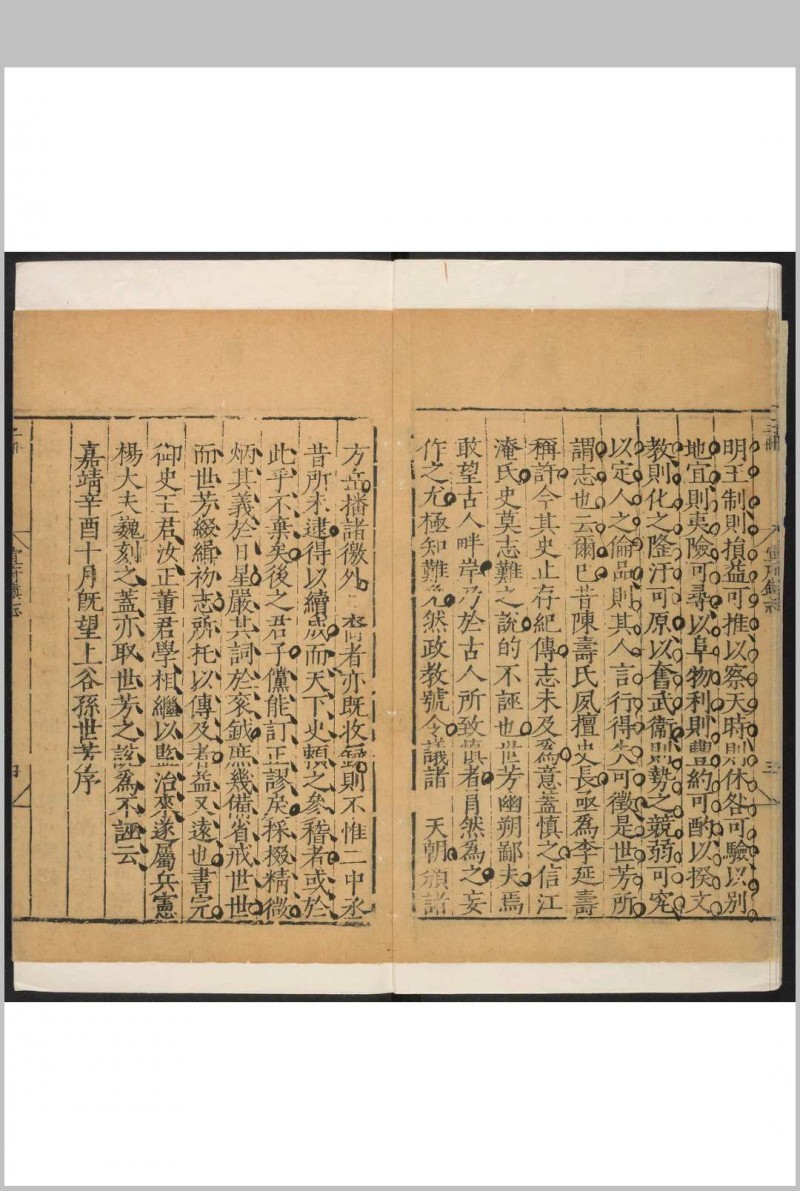 明王制則損益可推以察天時則休咎可驗以別
地宜則夷險可尋以阜物利則豐約可酌以揆文
教則化之隆汙可原以奮武衞則勢之競弱可究
以定人之倫品則其人言行得失可徵是世芳所
謂志也云爾已昔陳壽氏夙擅史長亟為李延壽
稱許今其史止存紀傳志未及為意蓋慎之信江
淹氏史莫志難之說的不誣也世芳幽朔鄙夫焉
敢望古人畔岸乃於古人所致慎者冒然為之妄
作之尤極知難然政教號令議諸　天朝頒諸
方岳播諸徼外　裔者亦既收錄則不惟二中丞
昔所未逮得以續成而天下史頼之參稽者或於
此乎不棄矣後之君子儻能訂正謬戾採掇精微
炳其義於日星嚴其詞於衮鉞庶幾備省戒世世
而世芳綴緝初志所托以傳及者益又遠也書完
御史王君汝正董君學相繼以監治來遂屬兵憲
楊大夫巍刻之蓋亦取世芳之說為不誣云
嘉靖辛酉十月既望上谷孫世芳序
宣府鎮志
三
四